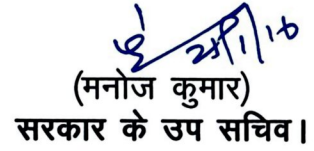 (मनोज कुमार)
सरकार के उप सचिव।